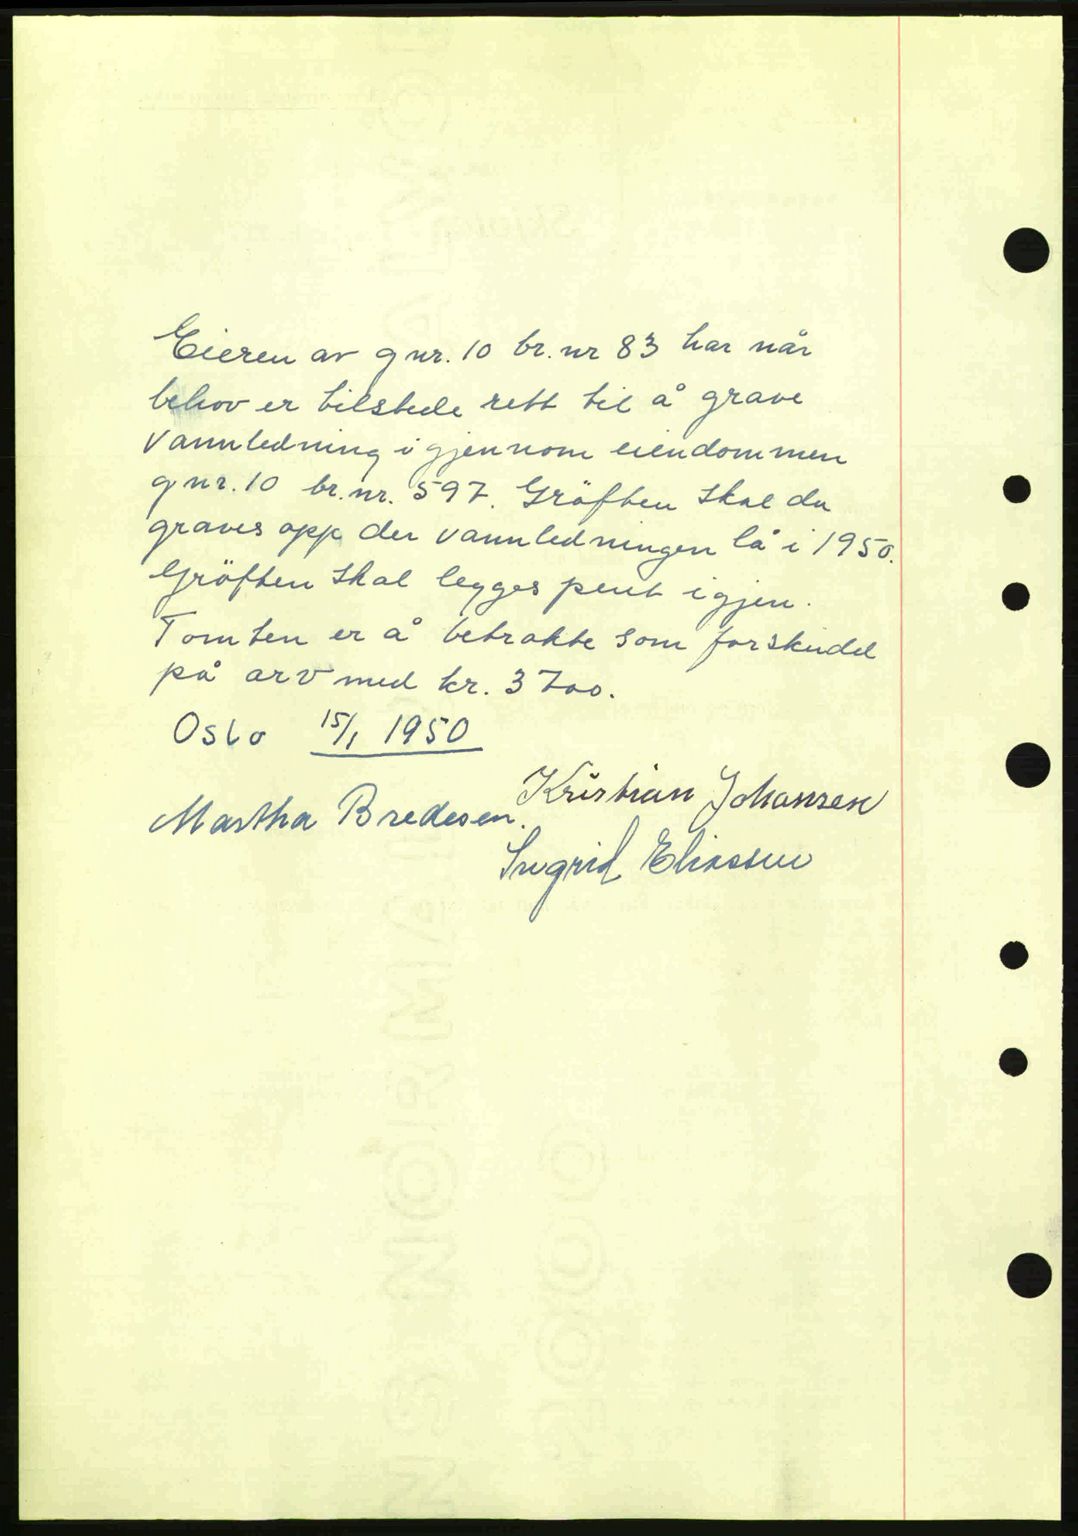 Eieren av gnr. 10 br. nr 83 har når
behov er tilstede rett til å grave
vannledning igjennom eiendommen
gnr. 10 br. nr. 597. Gröften skal da
graves opp der vannledningen lå i 1950.
Gröften skal legges pent igjen.
Tomten er å betrakte som forskudd
på arv med kr. 3700.
Oslo 15/1 1950
Kristian Johansen
Martha Bredesen.
Ingrid Eliassen